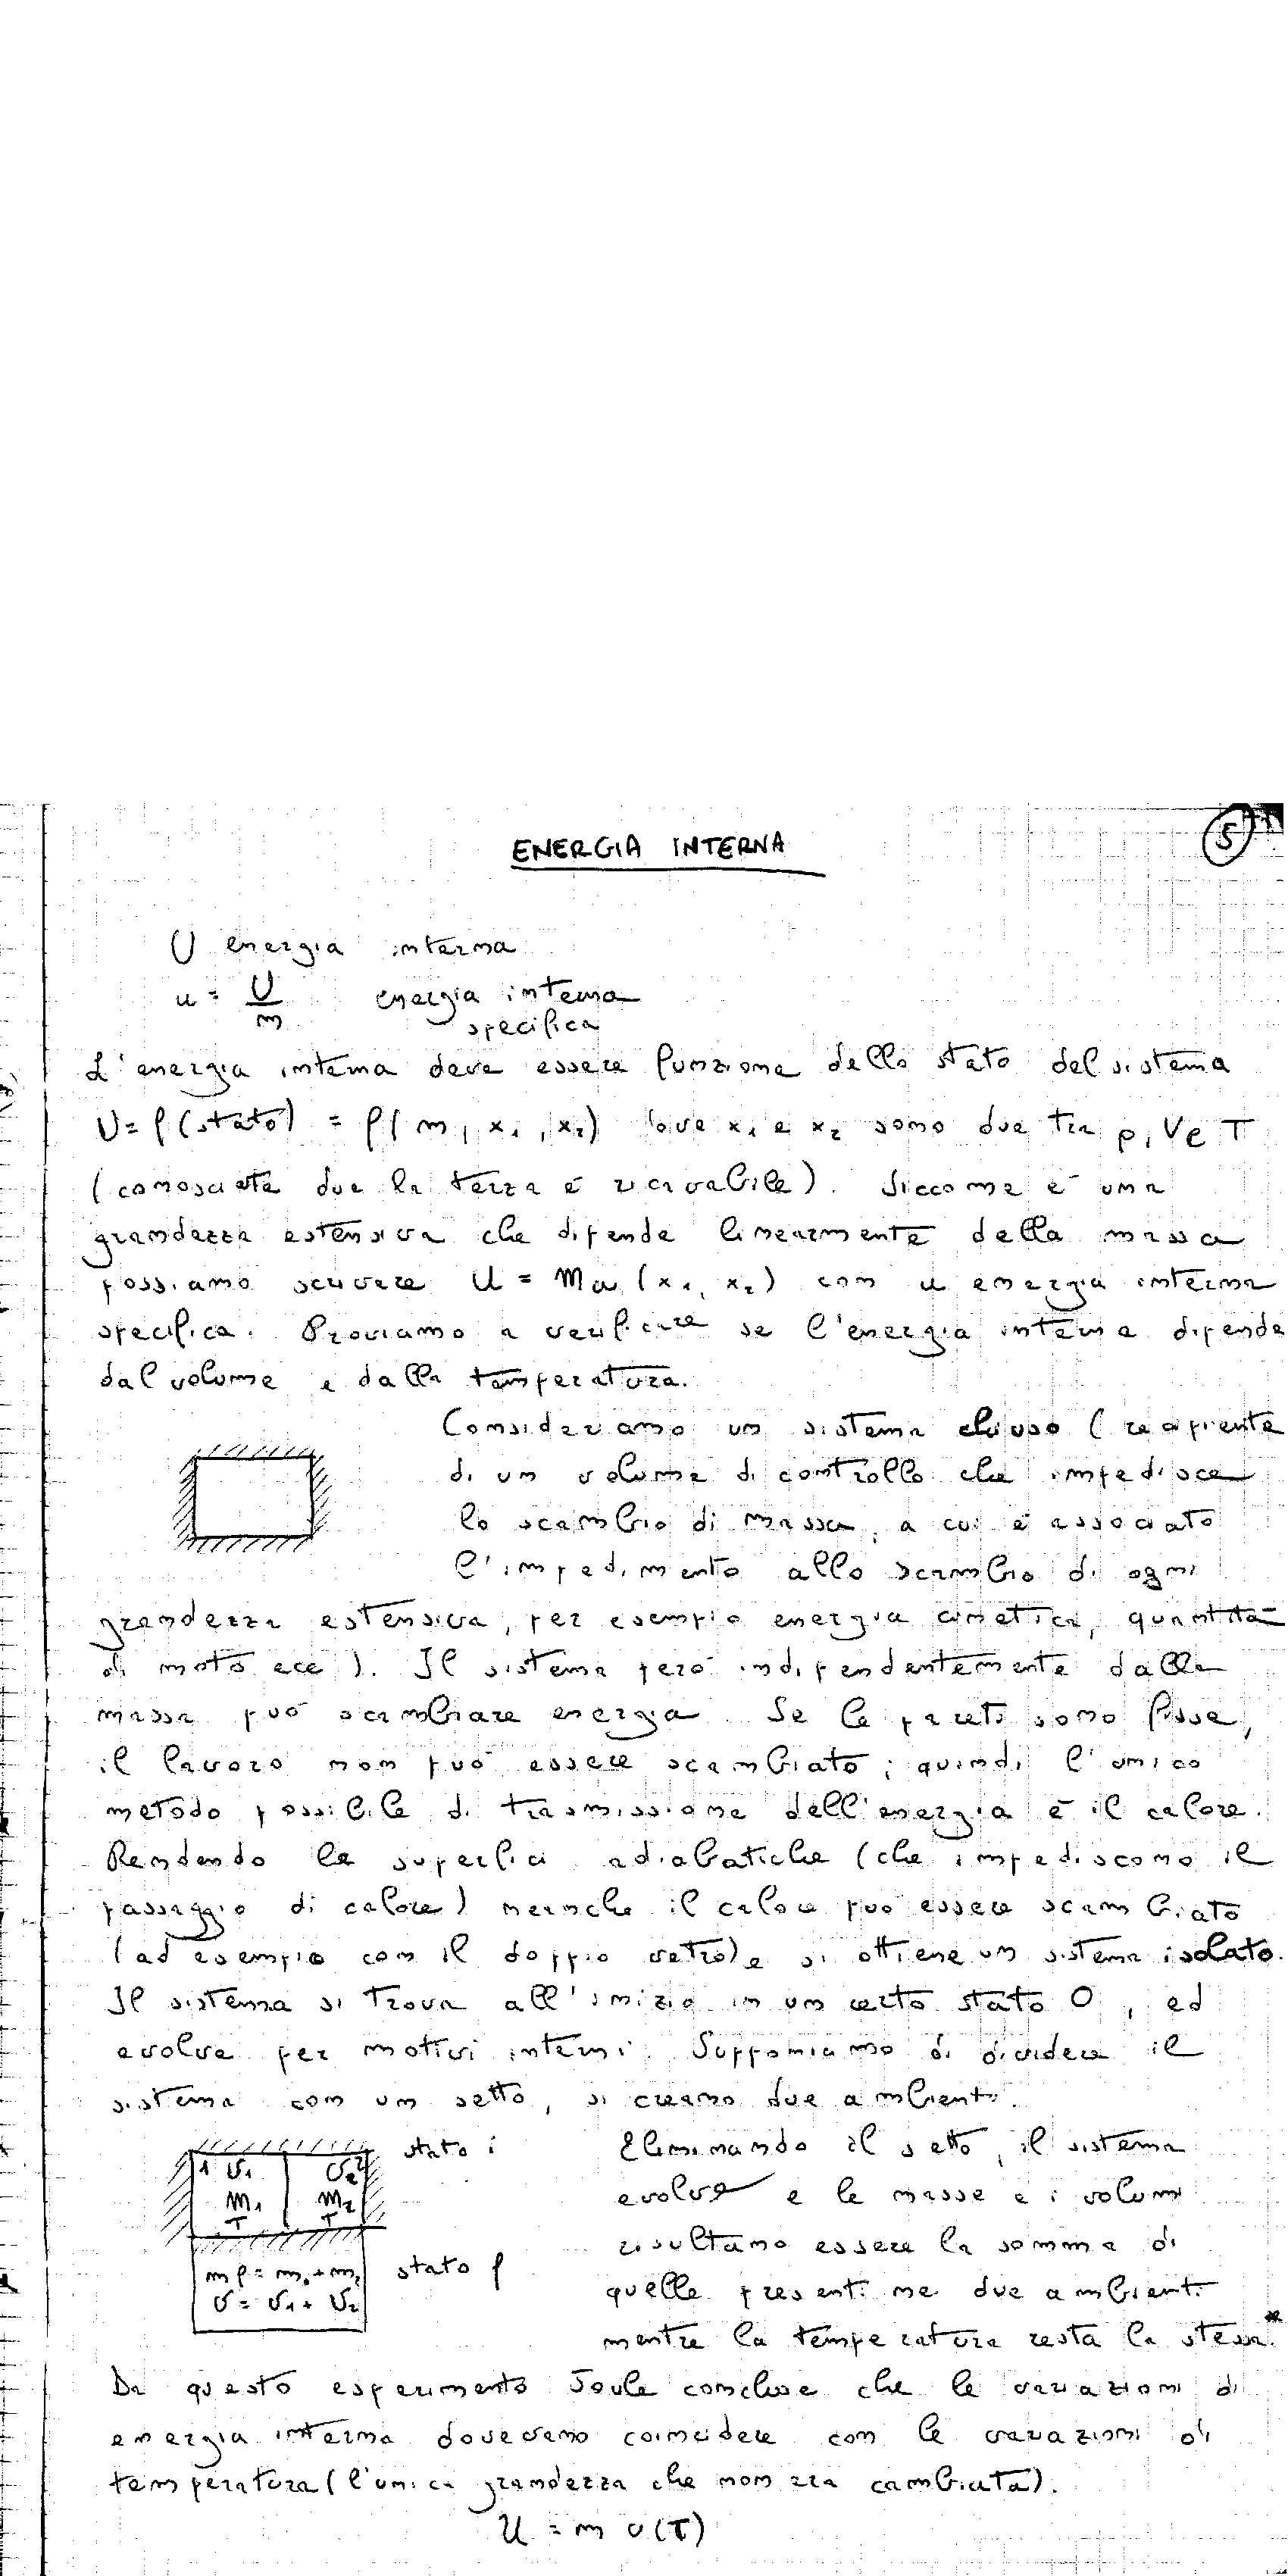 ENERGIA INTERNA
5
U energia interna
u = U/m energia interna
specifica
L'energia interna deve essere funzione dello stato del sistema
U = f (stato) = f ( m, x1, x2) dove x1 e x2 sono due tra p, V e T
(conosciute due la terza è ricavabile). Siccome è una
grandezza estensiva che dipende linearmente della massa
possiamo scrivere U = mu (x1, x2) con u energia interna
specifica. Proviamo a verificare se l'energia interna dipende
dal volume e dalla temperatura.
Consideriamo un sistema chiuso ( recipiente
di un volume di controllo che impedisce
lo scambio di massa, a cui è associato
l'impedimento allo scambio di ogni
grandezza estensiva, per esempio energia cinetica, quantità
di moto ecc ). Il sistema però indipendentemente dalla
massa può scambiare energia. Se le pareti sono fisse,
il lavoro non può essere scambiato; quindi l'unico
metodo possibile di trasmissione dell'energia è il calore.
Rendendo le superfici adiabatiche (che impediscono il
passaggio di calore) neanche il calore può essere scambiato
(ad esempio con il doppio vetro) e si ottiene un sistema isolato.
Il sistema si trova all'inizio in un certo stato O, ed
evolve per motivi interni. Supponiamo di dividere il
sistema con un setto, si creano due ambienti.
stato i
1 V1 V2 2
m1 m2
T T
stato f
mf = m1 + m2
V = V1 + V2
Eliminando il setto, il sistema
evolve e le masse e i volumi
risultano essere la somma di
quelle presenti nei due ambienti
mentre la temperatura resta la stessa.*
Da questo esperimento Joule concluse che le variazioni di
energia interna dovevano coincidere con le variazioni di
temperatura (l'unica grandezza che non era cambiata).
U = m u(T)